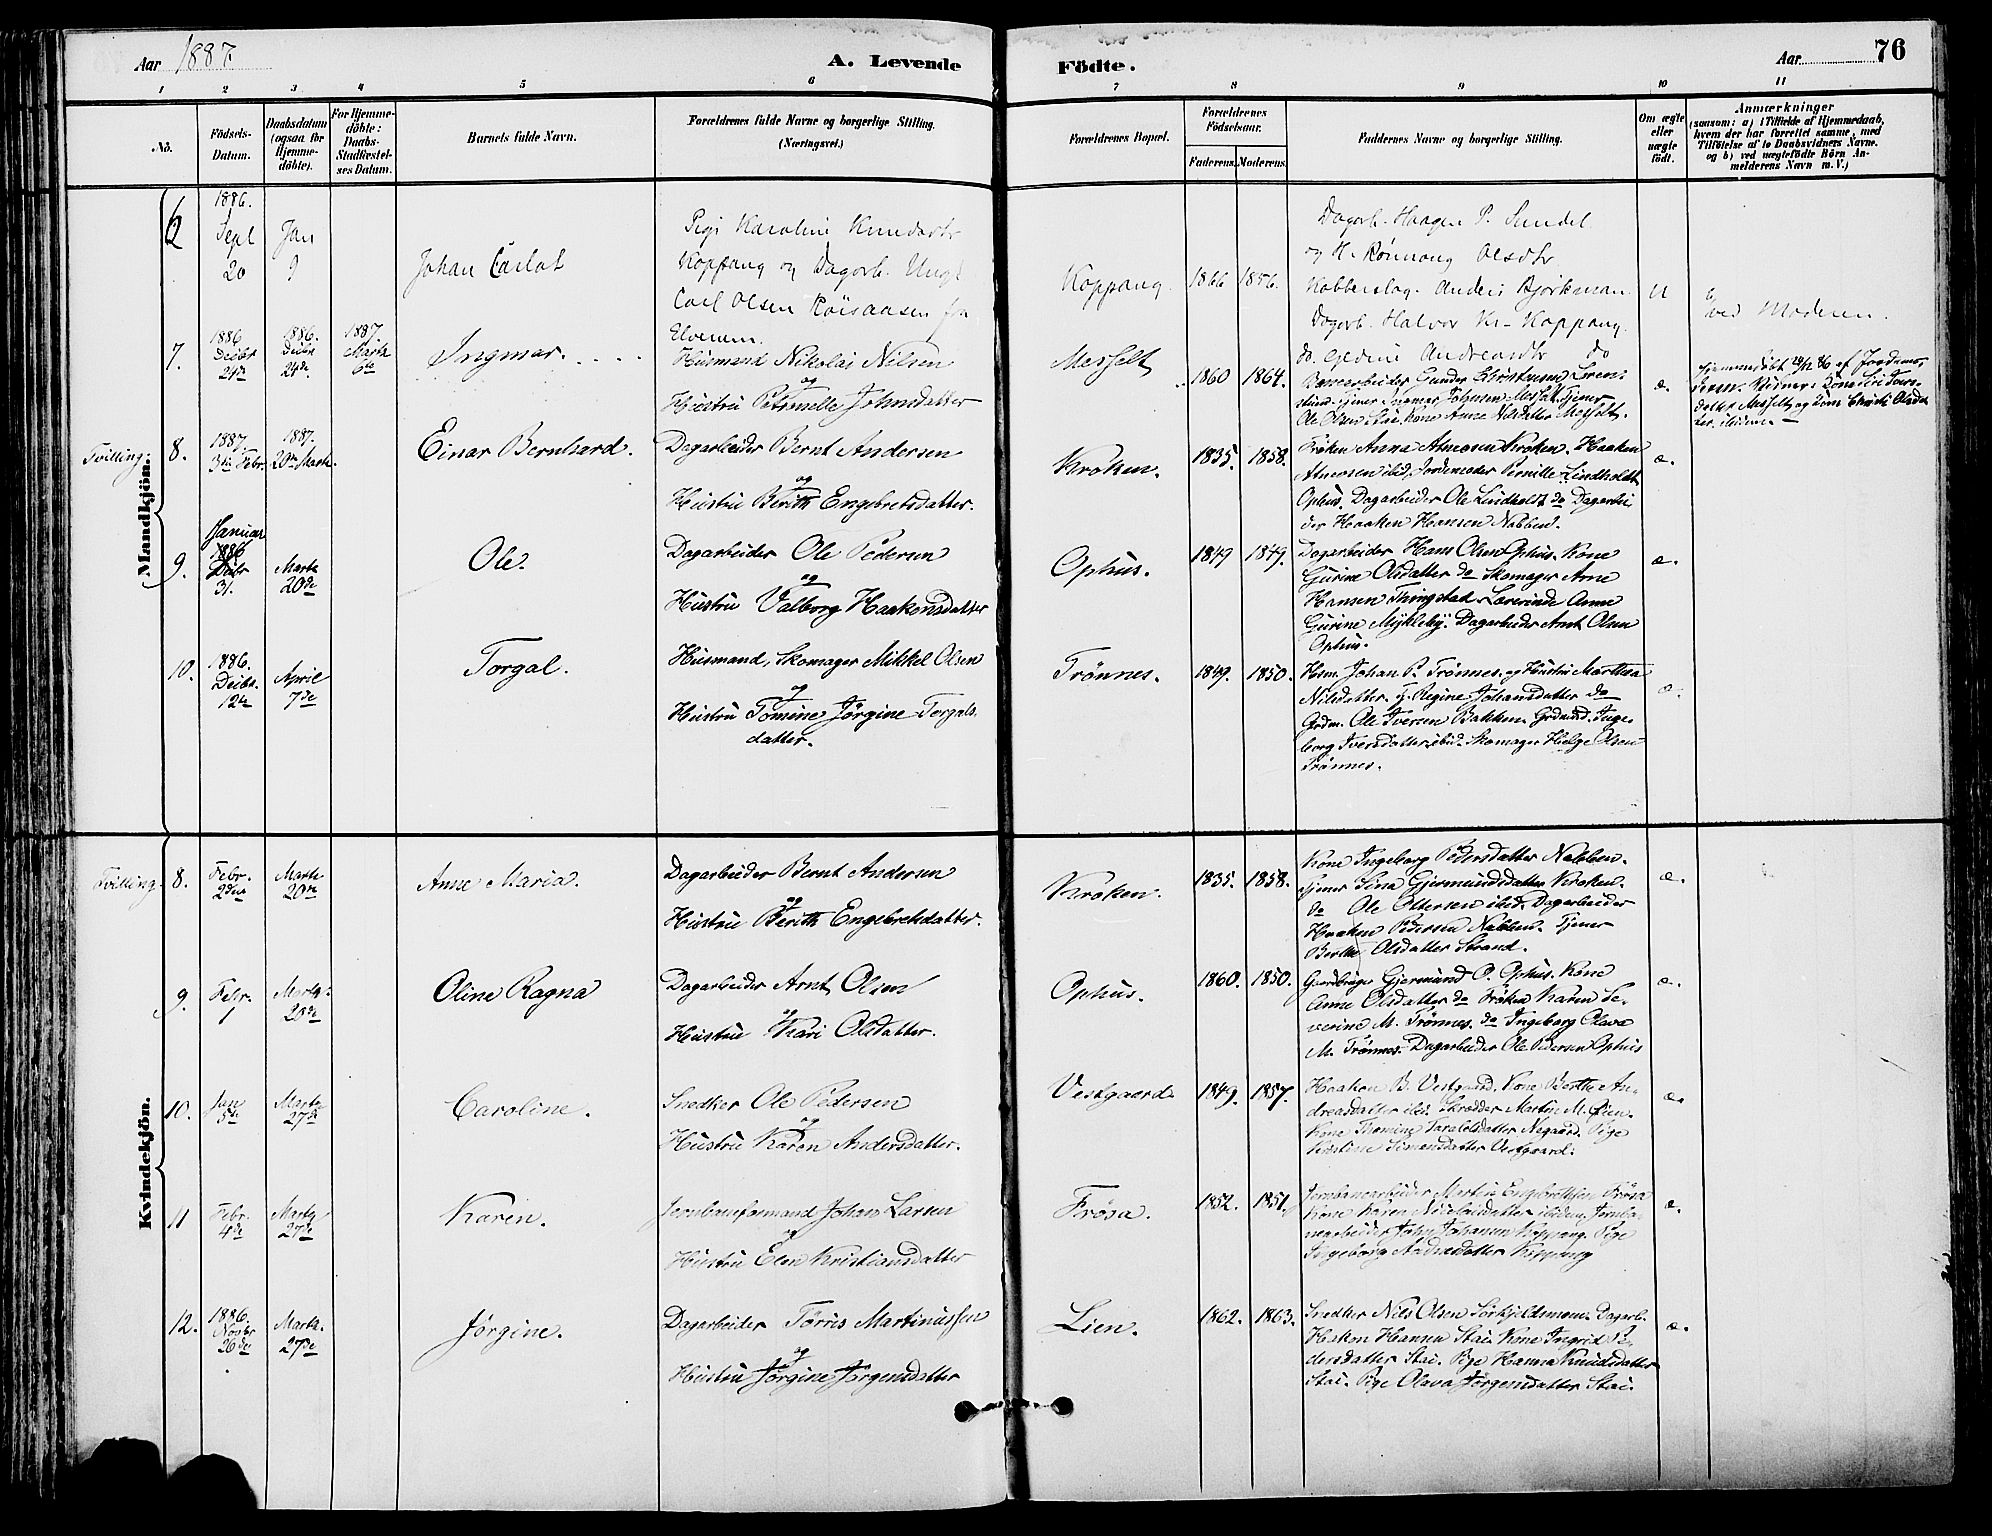 Aar 1887
A. Levende
Födte.
Aar
76
1 2 3 4 5 6 7 8 9 10 11
No.
Födsels-
Datum.
Daabsdatum
(ogsaa for
Hjemme-
döbte).
For Hjemme-
döbte:
Daabs-
Stadfæstel-
ses Datum.
Barnets fulde Navn.
Forældrenes fulde Navne og borgerlige Stilling.
(Næringsvei.)
Forældrenes Bopæl.
Forældrenes
Födselsaar.
Faderens. Moderens.
Faddernes Navne og borgerlige Stilling.
Om ægte
eller
uægte
født.
Anmærkninger
(saasom: a) i Tilfælde af Hjemmedaab,
hvem der har forrettet samme, med
Tilföielse af to Daabsvidners Navne.
og b) ved uægtefödte Börn An-
melderens Navn m. V.)
Mandkjön.
6
1886.
Sept
20
Jan
9
Johan Carlot
Pige Karoline Knudsdtr
Koppang og Dagarb. Ungk
Carl Olsen
Elverum.
Koppang.
1866 1856.
Dagarb. Haagen P. Sundel
og K. Rönnaug Olsdtr
Anders Bjørkman
Dagarb. Halvor Kr. Koppang.
do. Andreasdtr do
u
ved Moderen.
7.
1886
Decbr
24de
1886.
Decbr
24de
1887
Marts
6te
Ingmar.
Husmand Nikolai Nilsen
og
Hustru Petronelle Johnsdatter
Messelt
1860 1864.
Gunder Christensen
Ole Olsen Stai. Kone Anne Nilsdatter Messelt.
æ.
Hjemmedøbt 24/12 86 af Jordemo-
ibidem.
Tvilling.
8.
1887.
3die Febr.
1887.
20de Marts.
Einar Bernhard.
Dagarbeider Bernt Andersen
og
Hustru Berith Engebretsdatter.
Kroken.
1835. 1858.
Frøken Anna Amosen Kroken. Haaken
Amosen ibid. Jordemoder Pernille Lindholdt
Ophus. Dagarbeider Ole Lindholdt do Dagarbei
der Haaken Hansen Nabben.
æ.
9.
Januar
1886
Decbr
31.
Marts
20de
Ole.
Dagarbeider Ole Pedersen
og
Hustru Valborg Haakensdatter
Ophus.
1849 1849.
Dagarbeider Hans Olsen Ophus. Kone
Gurine Olsdatter do Skomager Arne
Hansen Thingstad. Lærerinde Anne
Gurine Mykleby. Dagarbeider Arnt Olsen
Ophus.
æ.
10.
1886.
Decbr.
12te
April
7de
Torgal.
Husmand, Skomager Mikkel Olsen
og
Hustru Tomine Jörgine Torgals
datter.
Trönnes.
1849. 1850.
Hsm. Johan P. Trönnes. og Hustru Marthea
Nilsdatter. Pj. Regine Johansdatter do
Grdm. Ole Iversen Bakken. Grdmd. Inge-
borg Iversdatter ibid. Skomager Helge Olsen
Trönnes.
æ.
Kvindekjön.
Tvilling.
8.
Febr.
2den
Marts
20de
Anne Maria.
Dagarbeider Bernt Andersen
og
Hustru Berith Engebretsdatter.
Kroken.
1835. 1858.
Kone Ingeborg Pedersdatter Nabben.
Tjener Sina Gjermundsdatter Kroken.
do Ole Ottersen ibid. Dagarbeider
Haaken Pedersen Nabben. Tjener
Berthe Olsdatter Strand.
æ.
9.
Febr.
1
Marts.
20de
Oline Ragna
Dagarbeider Arnt Olsen
og
Hustru Kari Olsdatter.
Ophus.
1860. 1850.
Gaardbruger Gjermund O. Ophus. Kone
Anne Olsdatter do Frøken Karen Se-
verine M. Trönnes. do Ingeborg Olava
M. Trönnes. Dagarbeider Ole Pedersen Ophus
æ.
10.
Jan
5te
Marts
27de
Caroline.
Snedker Ole Pedersen
og
Hustru Karen Andersdatter.
Vestgaard
1849. 1857.
Haaken B. Vestgaard. Kone Berthe An-
dreasdatter ibid. Skrædder Martin M. Lien.
Kone Thomine Taralelsdatter Nygaard. Pige
Kristine Simensdatter Vestgaard.
æ.
11
Febr.
4de
Marts
27de
Karen.
Jernbaneformand Johan Larsen
og
Hustru Elen Kristiansdatter
Frösa.
1852. 1851.
Jernbanearbeider Martin Engebretsen Frösa
Kone Karen Nikolaisdatter ibidem. Jernba-
nearbeider John Johansen Koppang. Pige
Ingeborg Andreasdatter Koppang
æ.
12.
1886.
Novbr
26de
Marts.
27de
Jörgine.
Dagarbeider Törris Martinussen
og
Hustru Jörgine Jörgensdatter
Lien.
1862. 1863.
Snedker Nils Olsen Sörkjeldsmoen. Dagarb.
Haken Hansen Stai. Kone Ingrid Pe-
dersdatter Stai. Pige Hanna Knudsdatter
Stai. Pige Olava Jörgensdatter Stai.
æ.